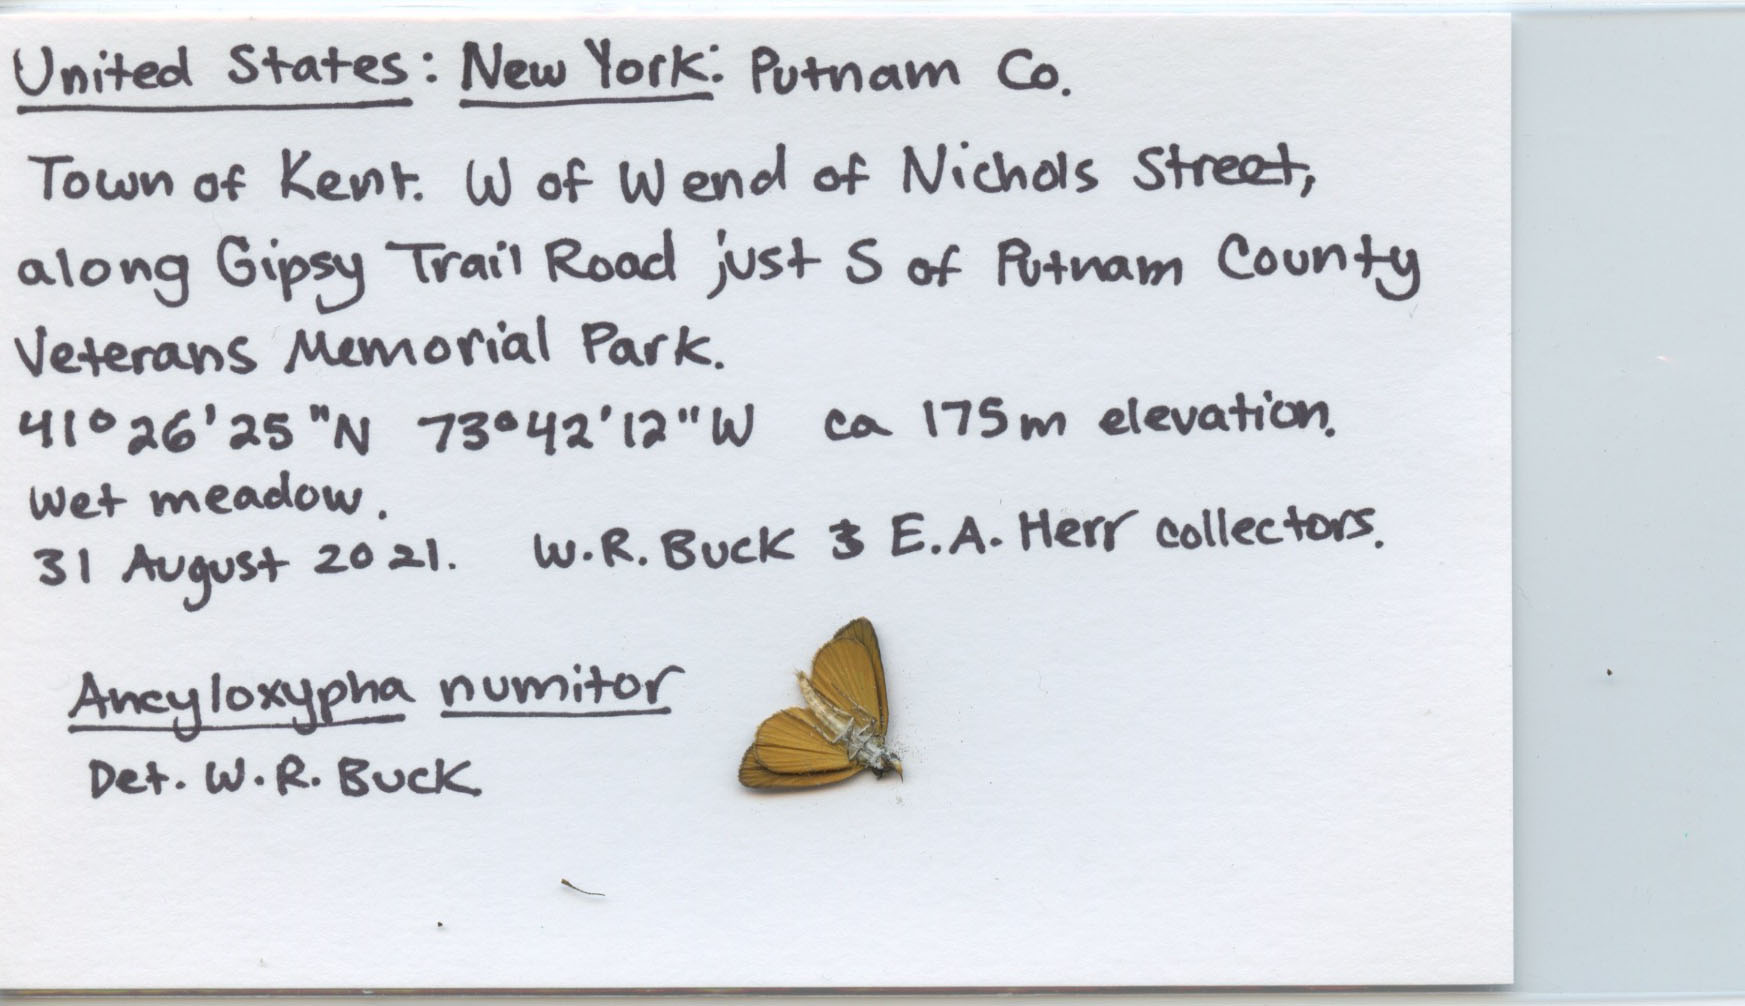 United States: New York: Putnam Co.
Town of Kent. W of W end of Nichols Street,
along Gipsy Trail Road just S of Putnam County
Veterans Memorial Park.
41°26'25"N 73°42'12"W ca 175m elevation.
Wet meadow.
31 August 2021. W.R. Buck & E.A. Herr collectors.
Ancyloxypha numitor
Det. W.R. Buck